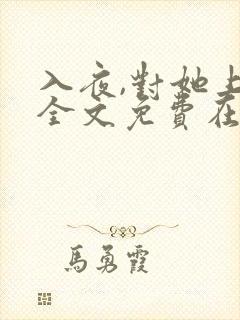 入夜,對她上
全文免費在
馬勇霞